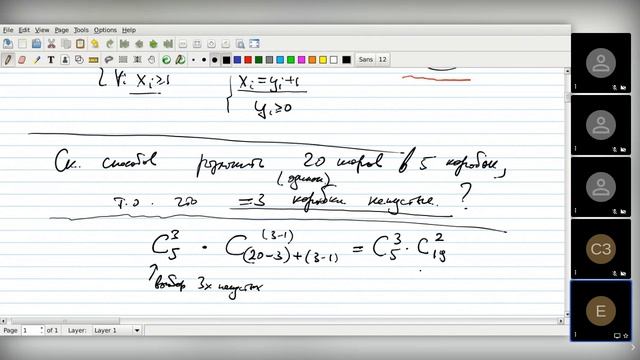 File Edit View Page Tools Options Help
Sans 12
∀i xᵢ ≥ 1
xᵢ = yᵢ + 1
yᵢ ≥ 0
Ск. способов разложить 20 шаров в 5 коробок,
(одинак)
т.о. что =3 коробки непустые. ?
C₅³ · C₍₂₀₋₃₎₊₍₃₋₁₎⁽³⁻¹⁾ = C₅³ · C₁₉²
выбор 3х непустых
Page 1 of 1 Layer: Layer 1
СЗ
E